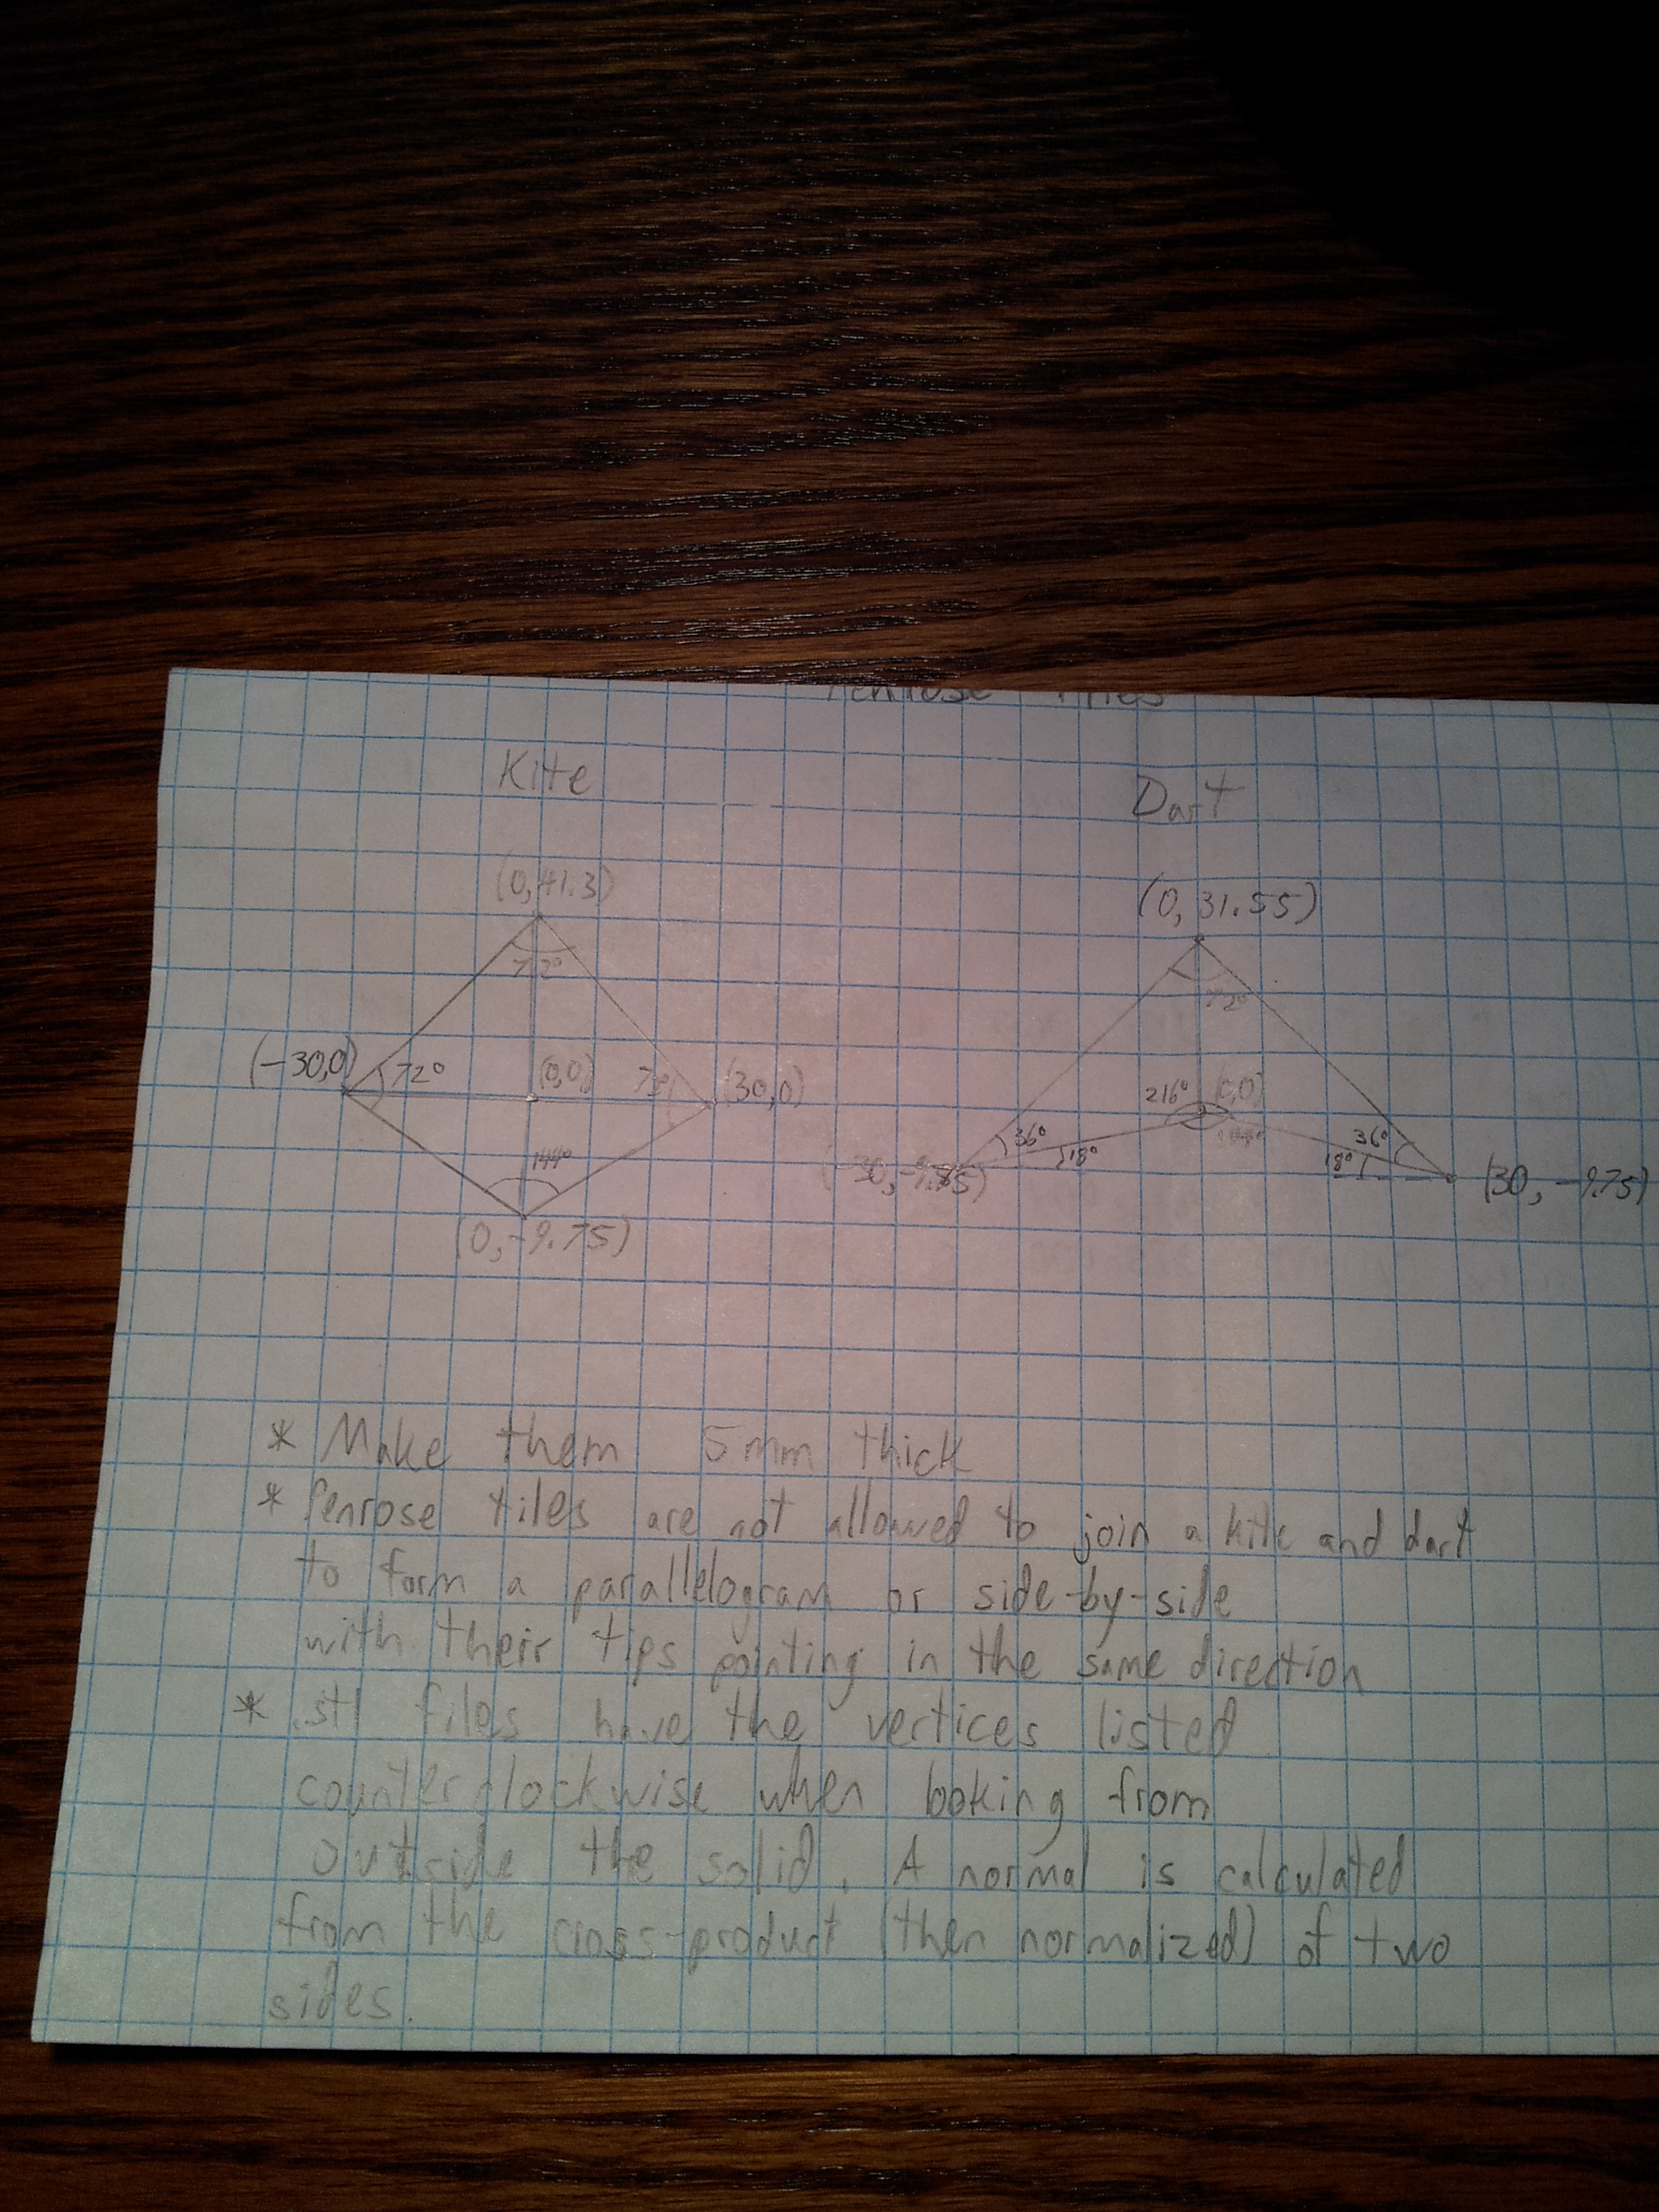 Penrose Tiles
Kite
Dart
(0,41.3)
(0,31.55)
72°
72°
(-30,0)
72°
(0,0)
72°
(30,0)
216°
(0,0)
144°
36°
18°
36°
18°
144°
(-30,-9.75)
(30,-9.75)
(0,-9.75)
* Make them 5mm thick
* Penrose tiles are not allowed to join a kite and dart
to form a parallelogram or side-by-side
with their tips pointing in the same direction
* .stl files have the vertices listed
counterclockwise when looking from
outside the solid. A normal is calculated
from the cross-product (then normalized) of two
sides.